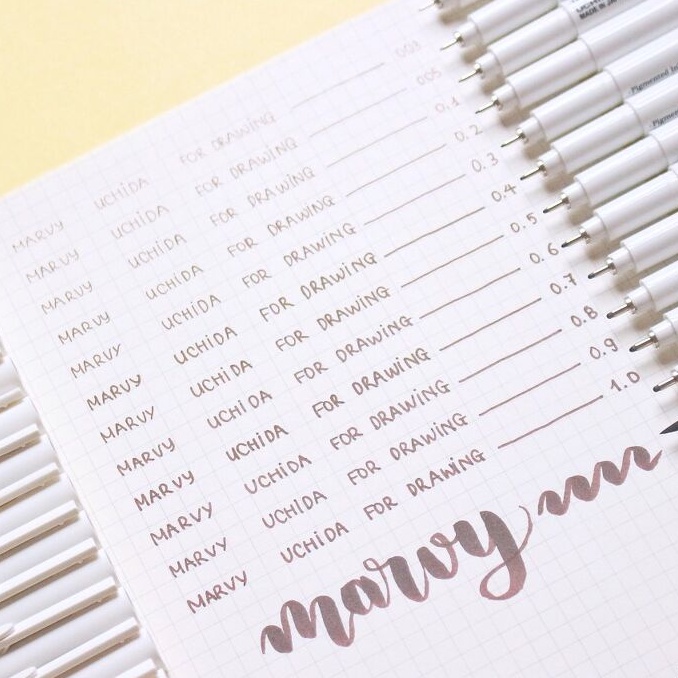 MARVY UCHIDA FOR DRAWING 003
MARVY UCHIDA FOR DRAWING 005
MARVY UCHIDA FOR DRAWING 0.1
MARVY UCHIDA FOR DRAWING 0.2
MARVY UCHIDA FOR DRAWING 0.3
MARVY UCHIDA FOR DRAWING 0.4
MARVY UCHIDA FOR DRAWING 0.5
MARVY UCHIDA FOR DRAWING 0.6
MARVY UCHIDA FOR DRAWING 0.7
MARVY UCHIDA FOR DRAWING 0.8
MARVY UCHIDA FOR DRAWING 0.9
MARVY UCHIDA FOR DRAWING 1.0
marvy
MADE IN
Pigmented
Pigmented